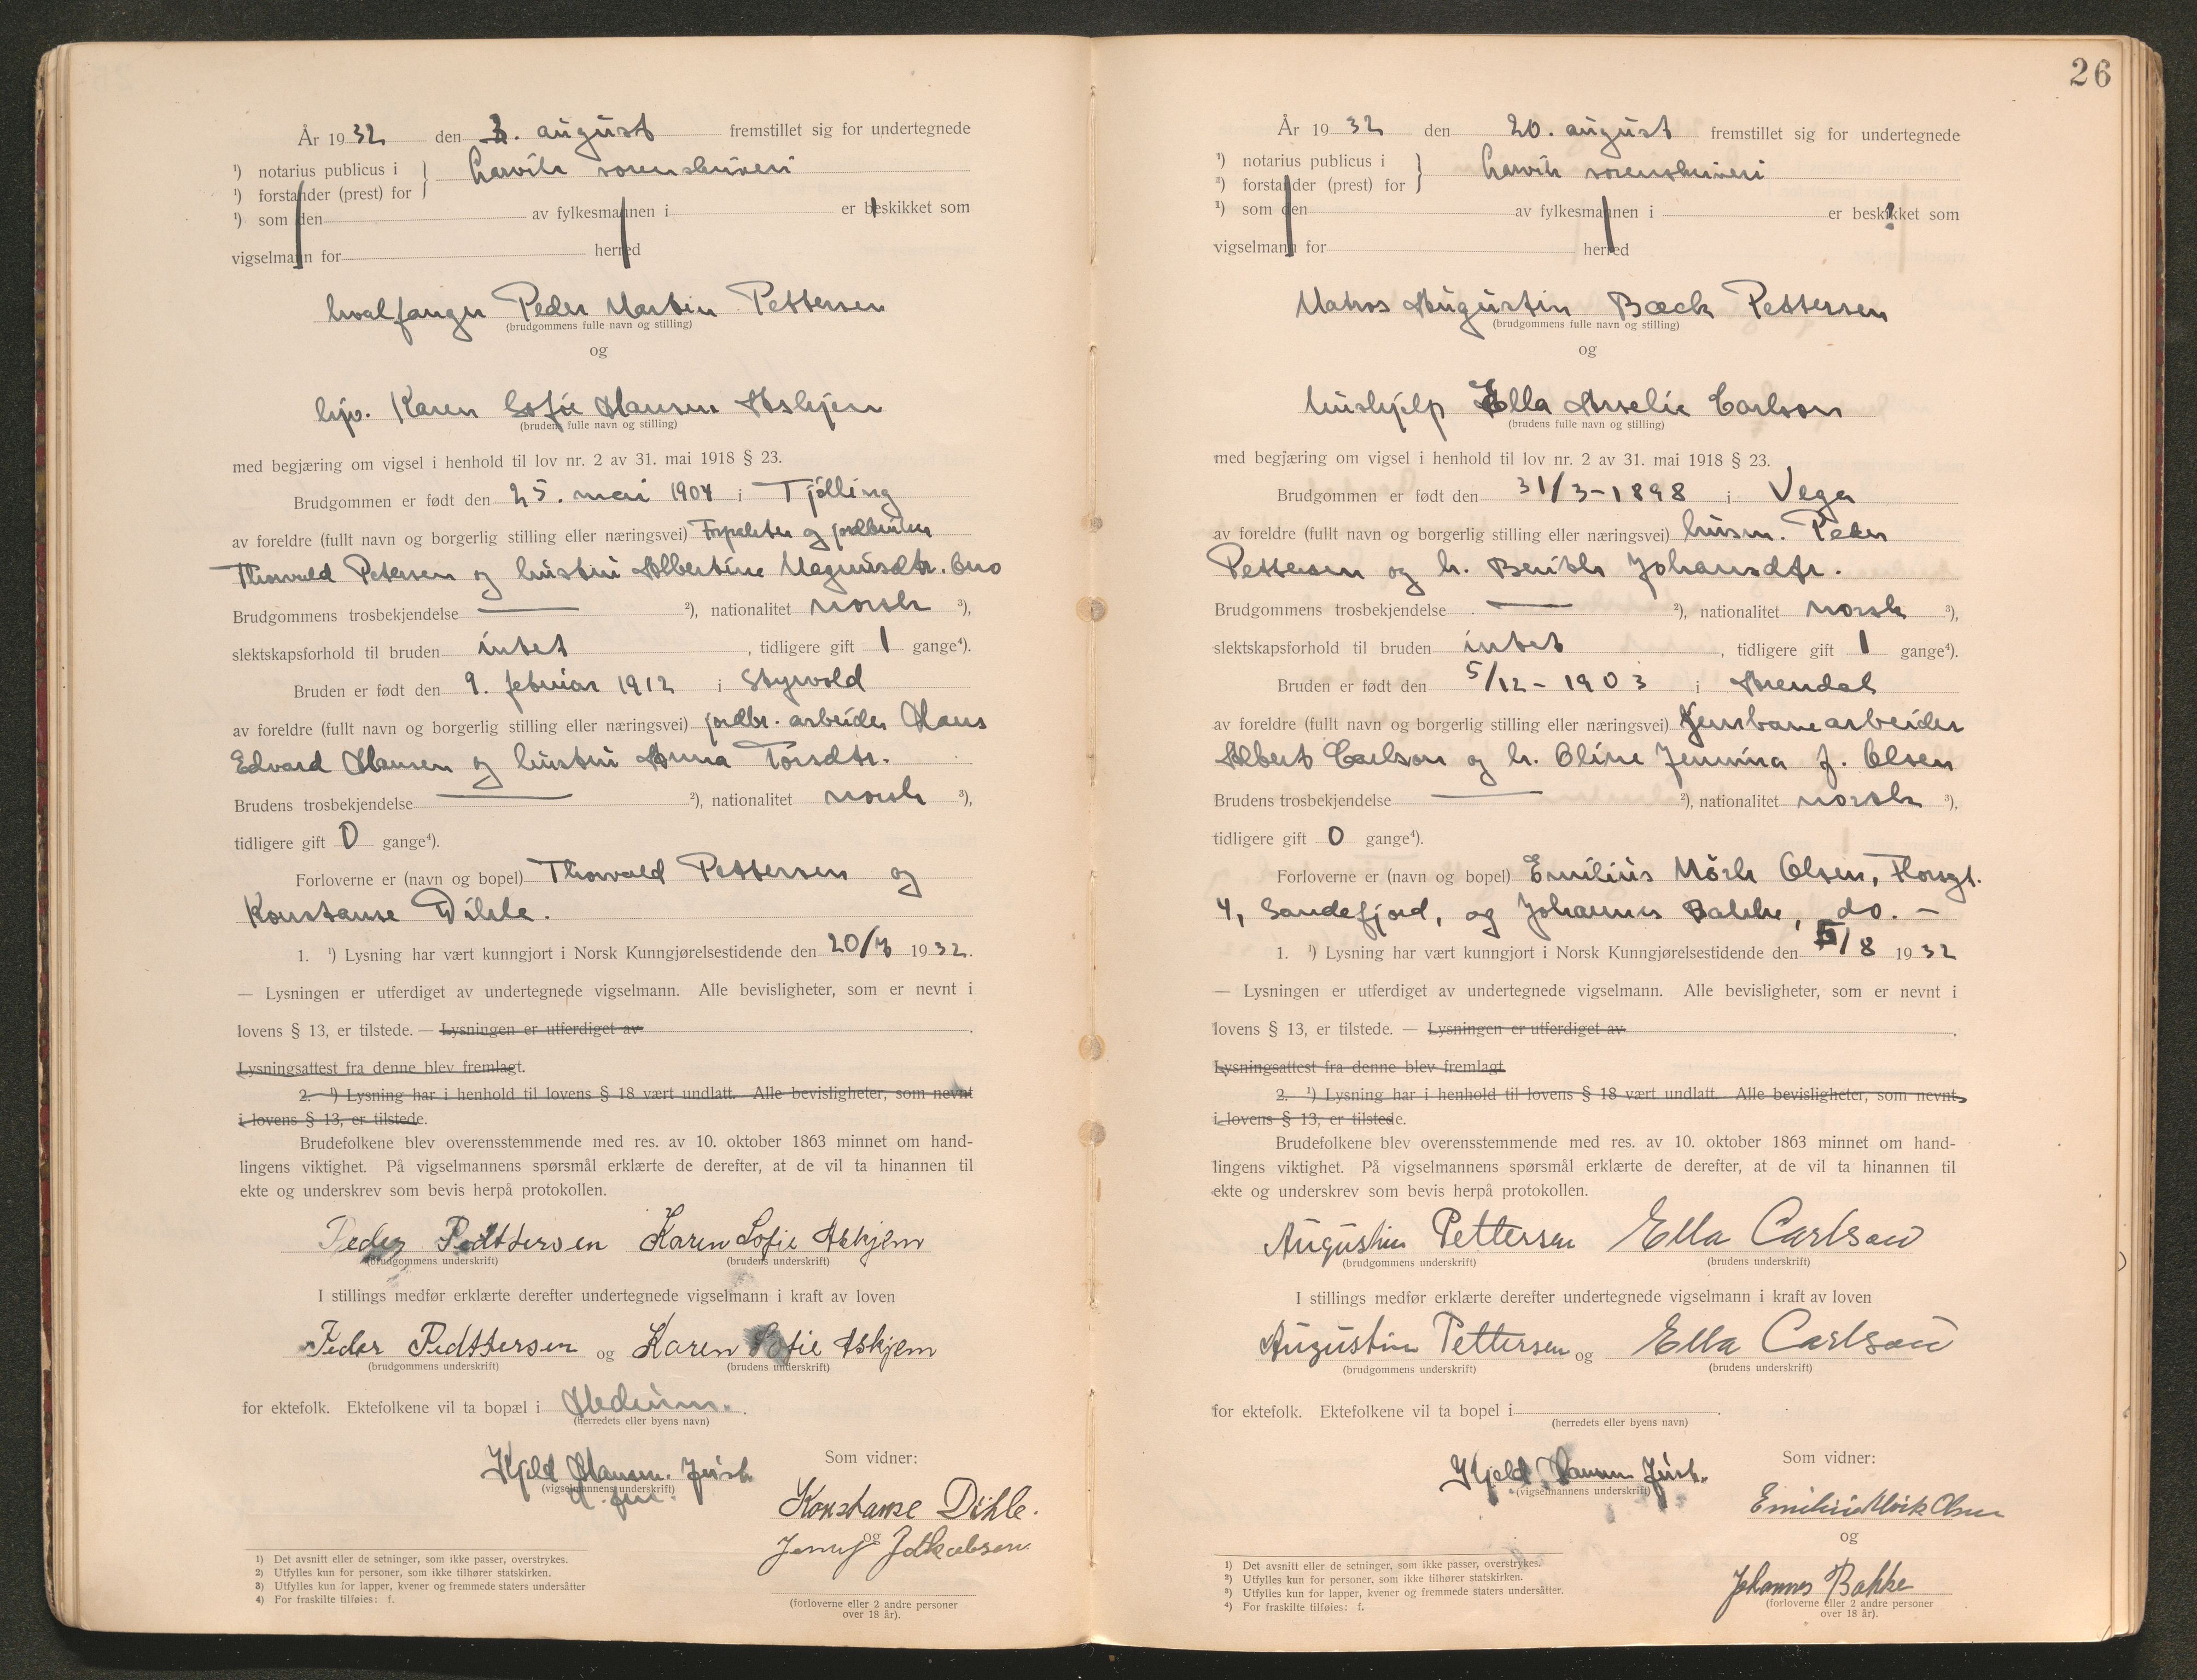 År 1932 den 3. august fremstillet sig for undertegnede
¹) notarius publicus i
¹) forstander (prest) for } Larvik sorenskriveri
¹) som den av fylkesmannen i er beskikket som
vigselmann for herred
hvalfanger Peder Martin Pettersen
(brudgommens fulle navn og stilling)
og
hjv. Karen Sofie Hansen Askjem
(brudens fulle navn og stilling)
med begjæring om vigsel i henhold til lov nr. 2 av 31. mai 1918 § 23.
Brudgommen er født den 25. mai 1904 i Tjølling
av foreldre (fullt navn og borgerlig stilling eller næringsvei) Forpakter og jordbruker
Thorvald Petersen og hustru Albertine Magnusdtr.
Brudgommens trosbekjendelse — ²), nationalitet norsk ³),
slektskapsforhold til bruden intet , tidligere gift 1 gange⁴).
Bruden er født den 9. februar 1912 i Styrvold
av foreldre (fullt navn og borgerlig stilling eller næringsvei) jordbr. arbeider Hans
Edvard Hansen og hustru Anna Torsdtr.
Brudens trosbekjendelse — ²), nationalitet norsk ³),
tidligere gift 0 gange⁴).
Forloverne er (navn og bopel) Thorvald Pettersen og
Konstanse Dihle.
1. ¹) Lysning har vært kunngjort i Norsk Kunngjørelsestidende den 20/7 1932.
— Lysningen er utferdiget av undertegnede vigselmann. Alle bevisligheter, som er nevnt i
lovens § 13, er tilstede. — Lysningen er utferdiget av
Lysningsattest fra denne blev fremlagt.
2. ¹) Lysning har i henhold til lovens § 18 vært undlatt. Alle bevisligheter, som nevnt
i lovens § 13, er tilstede.
Brudefolkene blev overensstemmende med res. av 10. oktober 1863 minnet om hand-
lingens viktighet. På vigselmannens spørsmål erklærte de derefter, at de vil ta hinannen til
ekte og underskrev som bevis herpå protokollen.
Peder Pedttersen Karen Sofie Askjem
(brudgommens underskrift) (brudens underskrift)
I stillings medfør erklærte derefter undertegnede vigselmann i kraft av loven
Peder Pedttersen og Karen Sofie Askjem
(brudgommens underskrift) (brudens underskrift)
for ektefolk. Ektefolkene vil ta bopæl i Hedrum.
(herredets eller byens navn)
Kjeld Hansen Juist
(vigselmannens underskrift)
Som vidner:
Konstanse Dihle.
og
Jenny Jakobsen
(forloverne eller 2 andre personer
over 18 år).
1) Det avsnitt eller de setninger, som ikke passer, overstrykes.
2) Utfylles kun for personer, som ikke tilhører statskirken.
3) Utfylles kun for lapper, kvener og fremmede staters undersåtter
4) For fraskilte tilføies: f.
26
År 1932 den 20. august fremstillet sig for undertegnede
¹) notarius publicus i
¹) forstander (prest) for } Larvik sorenskriveri
¹) som den av fylkesmannen i er beskikket som
vigselmann for herred
Matros Augustin Bæck Pettersen
(brudgommens fulle navn og stilling)
og
hushjelp Ella Arselie Carlson
(brudens fulle navn og stilling)
med begjæring om vigsel i henhold til lov nr. 2 av 31. mai 1918 § 23.
Brudgommen er født den 31/3-1898 i Vega
av foreldre (fullt navn og borgerlig stilling eller næringsvei) husm. Peder
Pettersen og h. Berith Johansdtr.
Brudgommens trosbekjendelse — ²), nationalitet norsk ³),
slektskapsforhold til bruden intet , tidligere gift 1 gange⁴).
Bruden er født den 5/12-1903 i Arendal
av foreldre (fullt navn og borgerlig stilling eller næringsvei) Jernbanearbeider
Albert Carlson og h. Oline Jemima f. Olsen
Brudens trosbekjendelse — ²), nationalitet norsk ³),
tidligere gift 0 gange⁴).
Forloverne er (navn og bopel) Emilius Mörk Olsen, Thorsgt.
4, Sandefjord, og Johannes Bakke, do. —
1. ¹) Lysning har vært kunngjort i Norsk Kunngjørelsestidende den 5/8 1932
— Lysningen er utferdiget av undertegnede vigselmann. Alle bevisligheter, som er nevnt i
lovens § 13, er tilstede. — Lysningen er utferdiget av
Lysningsattest fra denne blev fremlagt
2. ¹) Lysning har i henhold til lovens § 18 vært undlatt. Alle bevisligheter, som nevnt
i lovens § 13, er tilstede.
Brudefolkene blev overensstemmende med res. av 10. oktober 1863 minnet om hand-
lingens viktighet. På vigselmannens spørsmål erklærte de derefter, at de vil ta hinannen til
ekte og underskrev som bevis herpå protokollen.
Augustin Pettersen Ella Carlson
(brudgommens underskrift) (brudens underskrift)
I stillings medfør erklærte derefter undertegnede vigselmann i kraft av loven
Augustin Pettersen og Ella Carlson
(brudgommens underskrift) (brudens underskrift)
for ektefolk. Ektefolkene vil ta bopel i
(herredets eller byens navn)
Kjeld Hansen Juist.
(vigselmannens underskrift)
Som vidner:
Emilius Mörk Olsen
og
Johannes Bakke
(forloverne eller 2 andre personer
over 18 år).
1) Det avsnitt eller de setninger, som ikke passer, overstrykes.
2) Utfylles kun for personer, som ikke tilhører statskirken.
3) Utfylles kun for lapper, kvener og fremmede staters undersåtter.
4) For fraskilte tilføies: f.